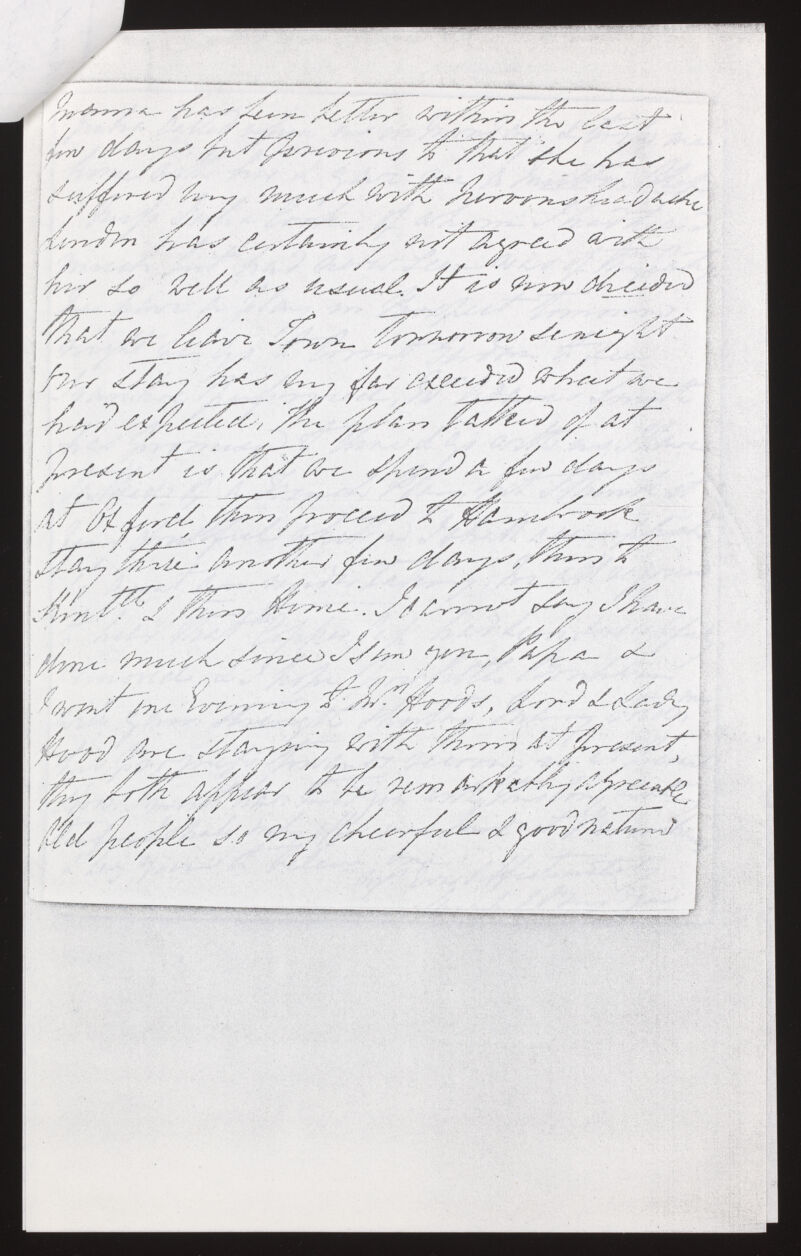 Mama has been better within the last
few days but previous to that she has
suffered very much with nervous headache
London has certainly not agreed with
her so well as usual. It is now decided
that we leave Town tomorrow senight
our stay has very far exceeded what we
had expected, the plan talked of at
present is that we spend a few days
at Oxford then proceed to Hambrook
stay there another few days, then to
& then Home. I cannot say I have
done much since I saw you, Papa &
I went one Evening to Hoods, Lord & Lady
Hood are staying with them at present,
they both appear to be remarkably agreeable
old people so very cheerful & good natured